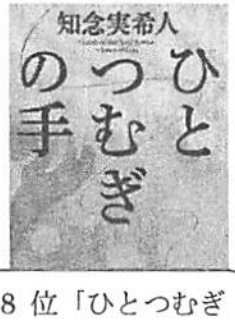 知念実希人
ひと
つむぎ
の手
8 位「ひとつむぎ